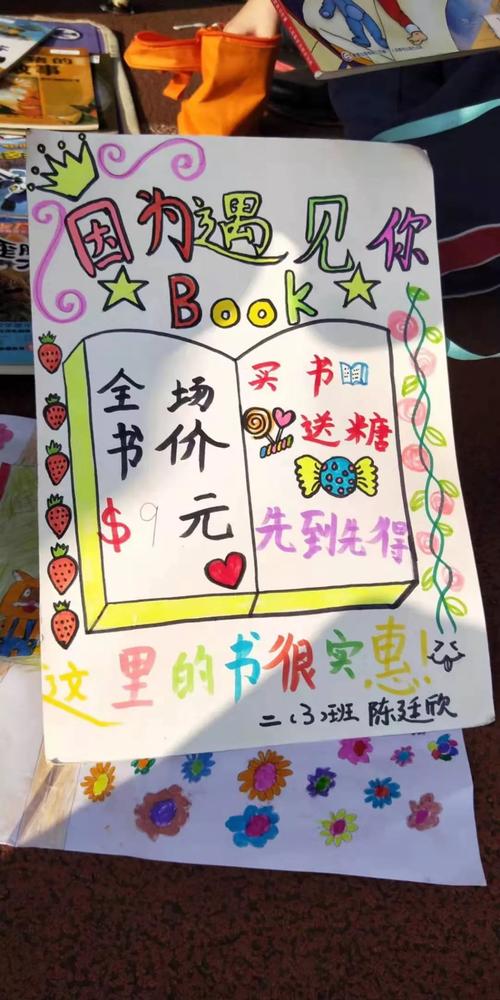 因为遇见你
Book
全场
书价
$9元
买书
送糖
先到先得
这里的书很实惠!
二(3)班 陈廷欣